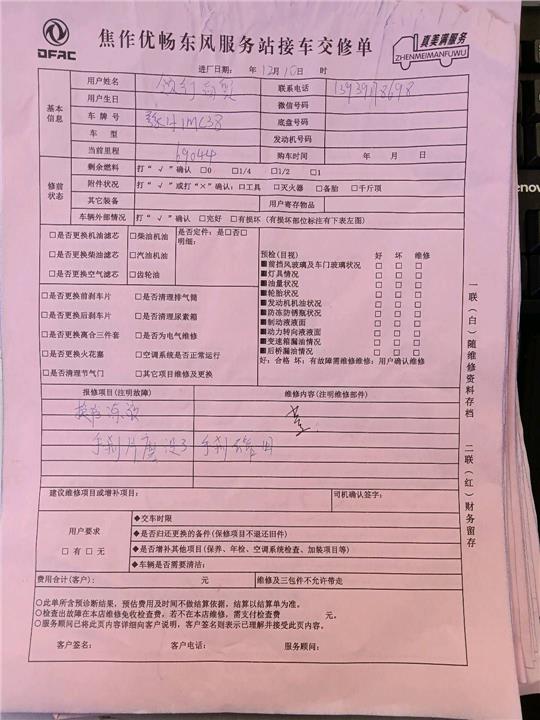 DFAC
焦作优畅东风服务站接车交修单
真美满服务
ZHENMEIMANFUWU
进厂日期: 年 12月10日 时
基本信息
用户姓名 联系电话
用户生日 微信号码
车牌号 底盘号码
车型 发动机号码
当前里程 69044 购车时间 年 月 日
修前状态
剩余燃料 打“√”确认 □0 □1/4 □1/2 □1
附件状况 打“√”或打“×”确认:□工具 □灭火器 □备胎 □千斤顶
其它装备 用户寄存物品
车辆外部情况 打“√”确认 □完好 □有损坏(有损坏部位标注有下表左图)
□是否更换机油滤芯 □柴油机油 是否定件:是□否□
明细:
□是否更换柴油滤芯 □汽油机油
□是否更换空气滤芯 □齿轮油
□是否更换前刹车片 □是否清理排气筒
□是否更换后刹车片 □是否清理尿素箱
□是否更换离合三件套 □是否为电气维修
□是否更换火花塞 □空调系统是否正常运行
□是否清理节气门 □其它项目维修及更换
预检(目视) 好 坏 维修
■前挡风玻璃及车门玻璃状况 □ □ □
■灯具情况 □ □ □
■油量状况 □ □ □
■轮胎状况 □ □ □
■发动机机油状况 □ □ □
■防冻防锈瓶状况 □ □ □
■制动液液面 □ □ □
■动力转向液液面 □ □ □
■变速箱漏油情况 □ □ □
■后桥漏油情况 □ □ □
好:合格 坏:有故障需维修维修:用户确认维修
报修项目(注明故障) 维修内容(注明维修部件)
换防冻液
手刹片磨没了 手刹不管用
建议维修项目或增补项目: 司机确认签字:
用户要求
□有 □无
◆交车时限
◆是否归还更换的备件(保修项目不退还旧件)
◆是否增补其他项目(保养、年检、空调系统检查、加装项目等)
◆车辆是否需要清洁:
费用合计(客户): 元 维修及三包件不允许带走
○此单所含预诊断结果,预估费用及时间不做结算依据,结算以结算单为准。
○检查出故障在本店维修免收检查费,若不在本店维修,需支付检查费 元。
○服务顾问已将此页内容详细向客户说明,客户签名则表示已理解并接受此页内容。
客户签名: 客户电话: 服务顾问:
一联(白)随维修资料存档
二联(红)财务留存
lenovo